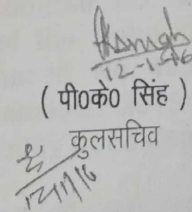 12-1-16
( पी०के० सिंह )
कुलसचिव
12/1/16